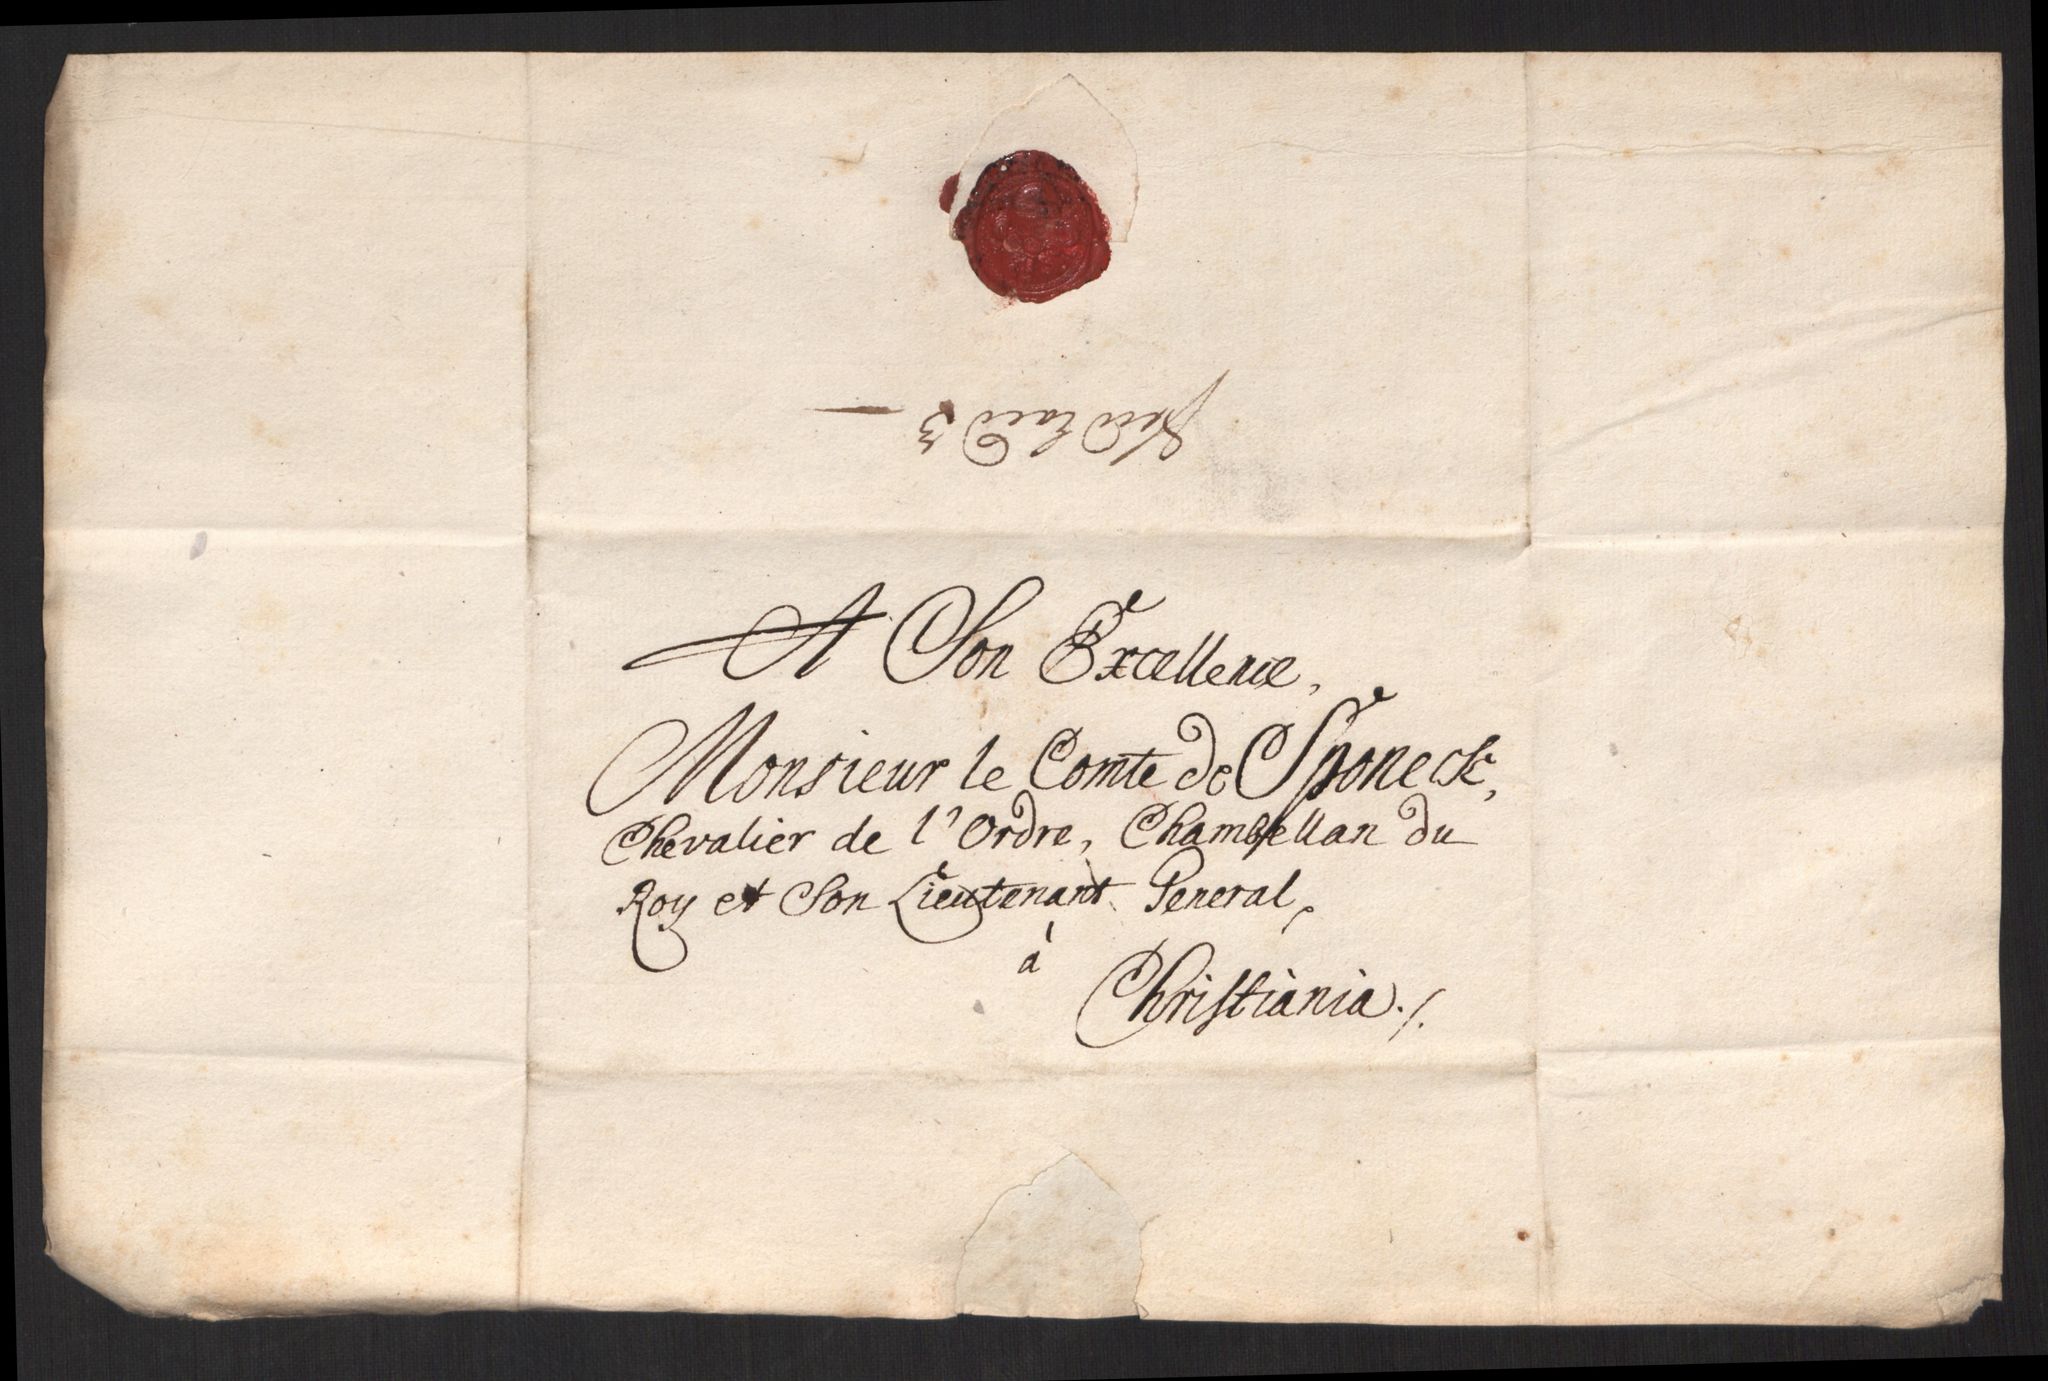 A Son Excellence,
Monsieur le Comte de Sponeck,
Chevalier de l'Ordre, Chambellan du
Roy et Son Lieutenant General,
à
Christiania./.